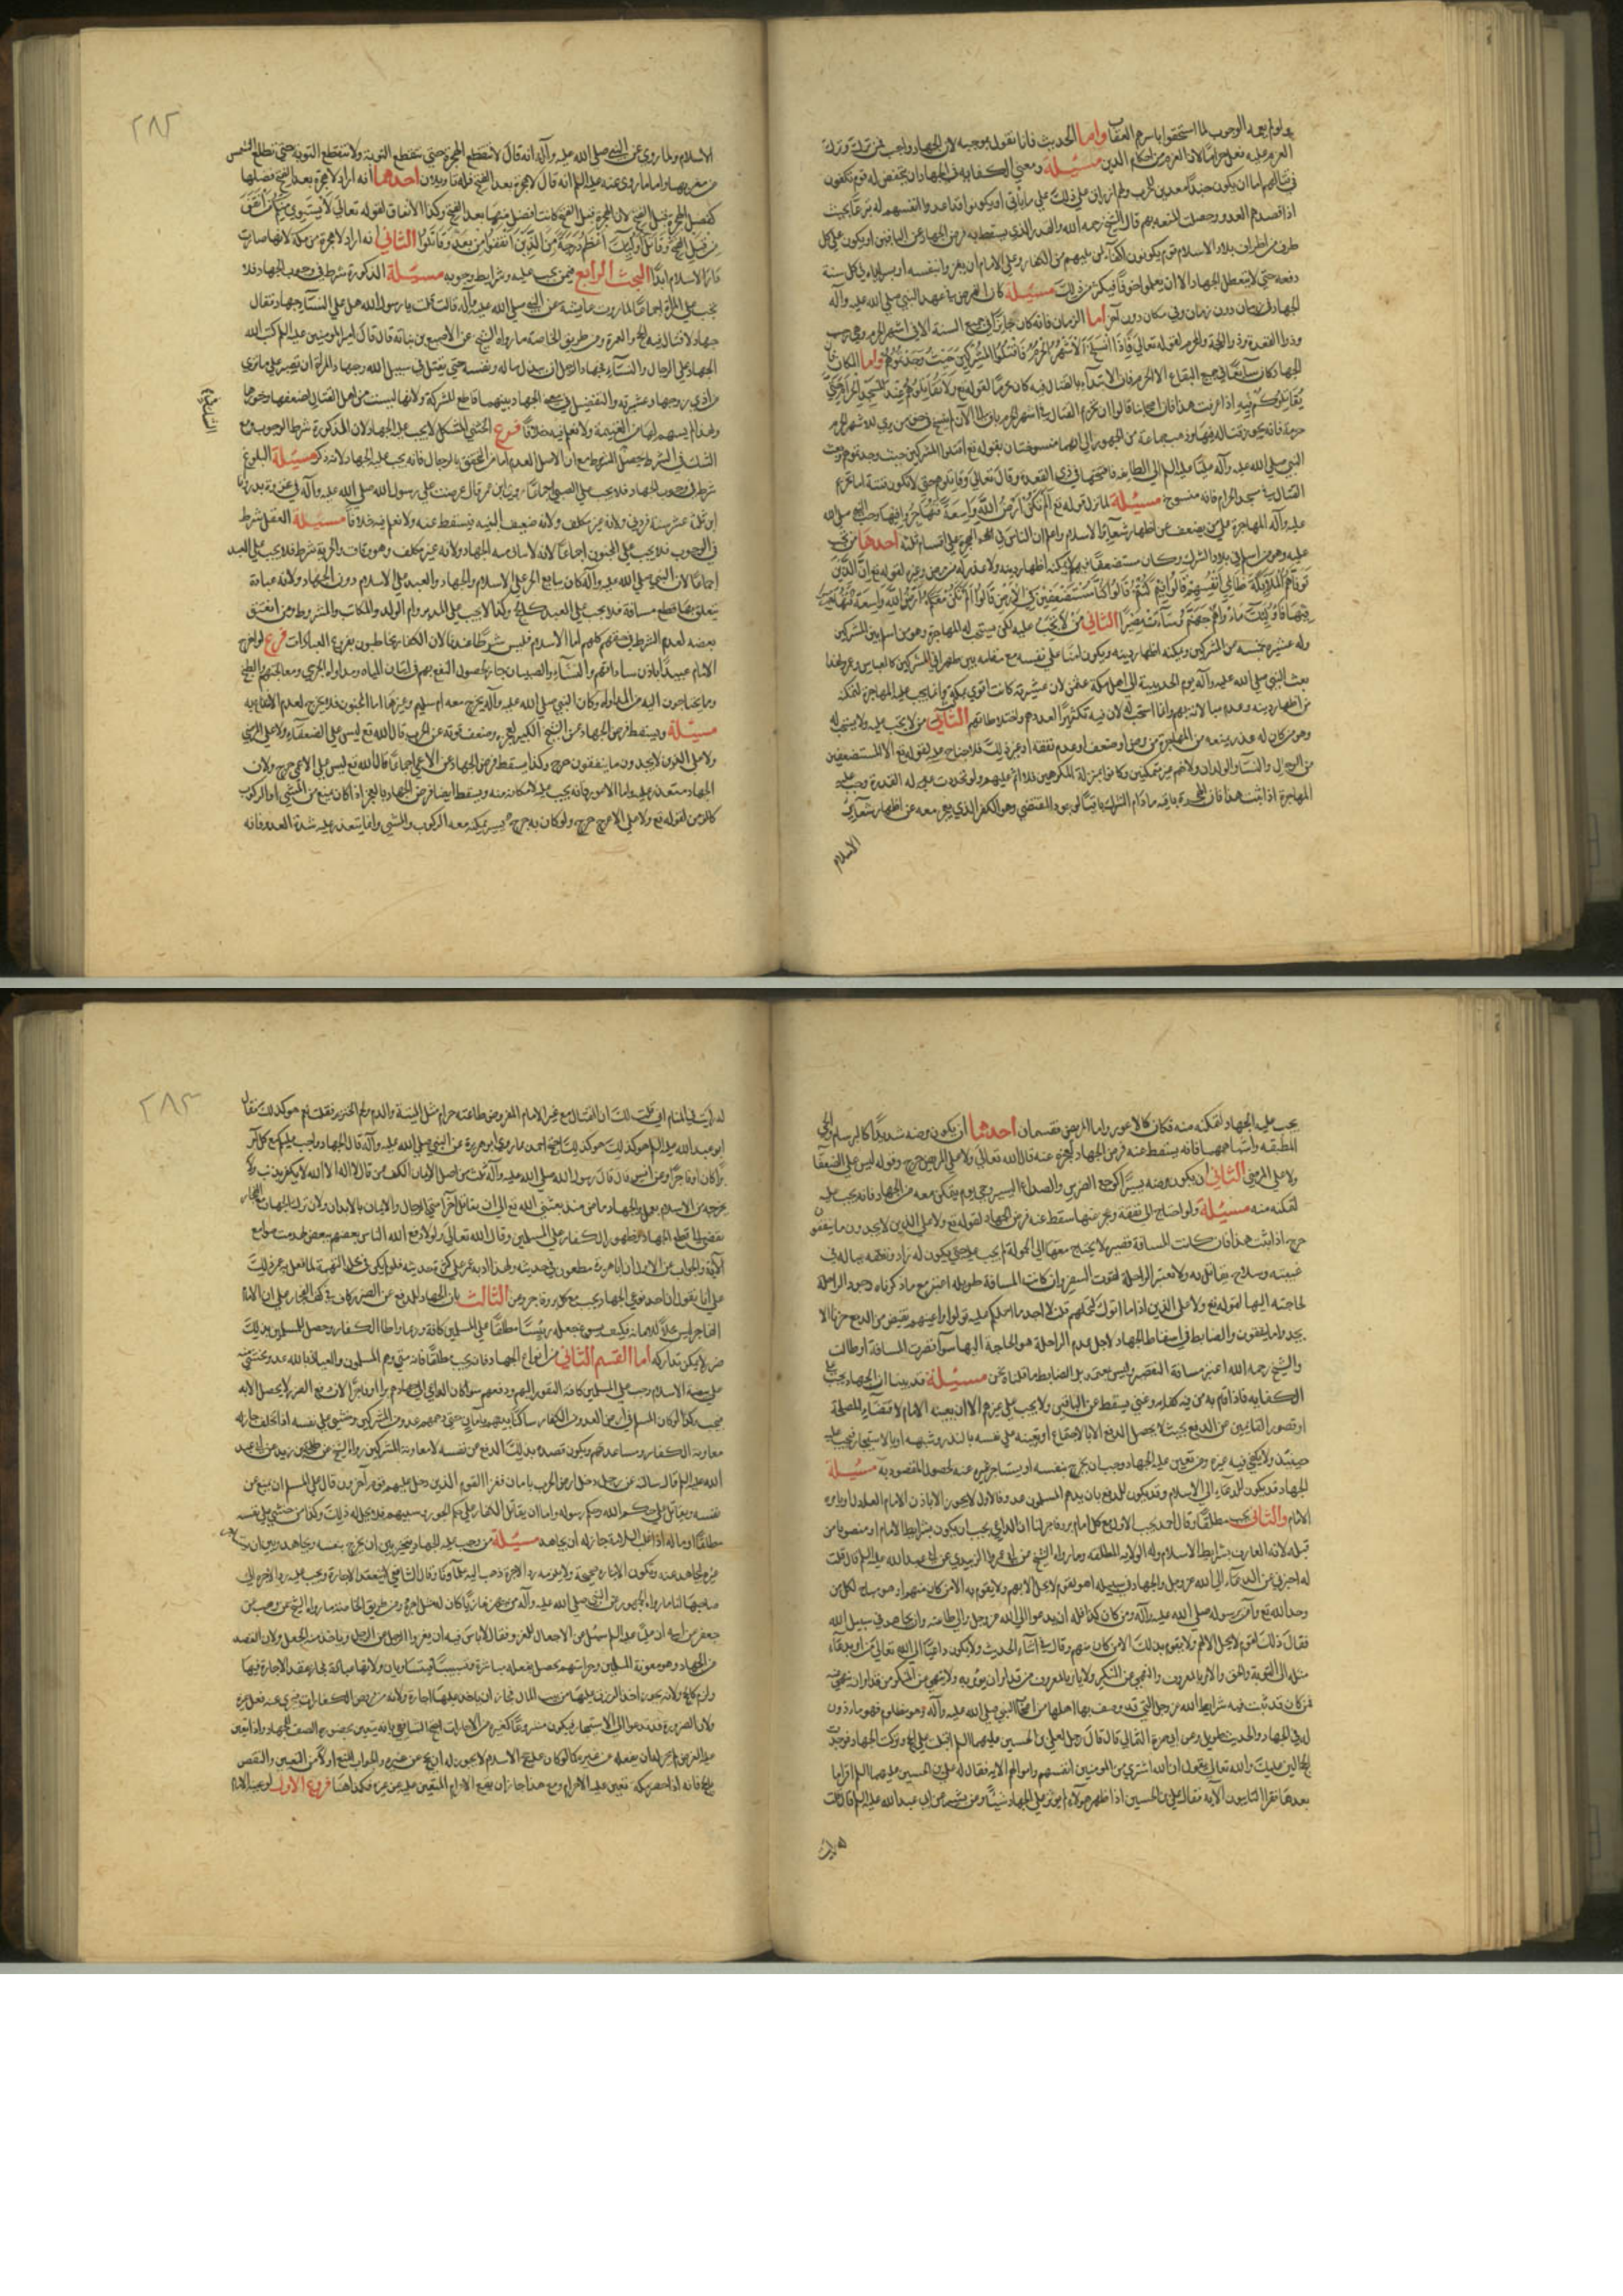 يعلموا بعد الوجوب لما استحقوا باسرهم العقاب واما الحديث فانا نقول بموجبه لان الجهاد واجب فمن ترك وترك
العزم عليه فعل حراما لان العزم من احكام الدين مسئلة ومعنى الكفاية في الجهاد ان ينهض له قوم يكفون
في قتالهم اما ان يكون جندا معدين للحرب ولهم ارزاق على ذلك او يكونوا قد اعدوا انفسهم له تبرعا بحيث
اذا قصدهم العدو وحصلت المنعة بهم قال الشيخ رحمه الله والقدر الذي يسقط به فرض الجهاد عن الباقين ان يكون على كل
طرف من اطراف بلاد الاسلام قوم يكونون اكفاء لمن يليهم من الكفار وعلى الامام ان يغزو بنفسه او بسراياه في كل سنة
دفعة حتى لا يتعطل الجهاد الا ان يعلم خوفا فيكثر من ذلك مسئلة كان الفرض في عهد النبي صلى الله عليه وآله
الجهاد في زمان دون زمان وفي مكان دون آخر اما الزمان فانه كان جايزا في جميع السنة الا في اشهر الحرم وهي رجب
وذو القعدة وذو الحجة والمحرم لقوله تعالى فاذا انسلخ الاشهر الحرم فاقتلوا المشركين حيث وجدتموهم واما المكان فان
الجهاد كان سايغا في جميع البقاع الا الحرم فان الابتداء بالقتال فيه كان محرما لقوله تع ولا تقاتلوهم عند المسجد الحرام حتى
يقاتلوكم فيه اذا عرفت هذا فان اصحابنا قالوا ان تحريم القتال في اشهر الحرم باق الى الآن لم ينسخ في حق من يرى للاشهر الحرم
حرمة فانه يحرم قتاله فيها وذهب جماعة من الجمهور الى انهما منسوختان بقوله تع اقتلوا المشركين حيث وجدتموهم وبعث
النبي صلى الله عليه وآله عليا عليه السلم الى الطايف فافتتحها في ذي القعدة وقال تعالى وقاتلوهم حتى لا تكون فتنة اما تحريم
القتال في المسجد الحرام فانه منسوخ مسئلة لما نزل قوله تع الم تكن ارض الله واسعة فتهاجروا فيها وجب النبي صلى الله
عليه وآله المهاجرة على من يضعف عن اظهار شعاير الاسلام واعلم ان الناس في الهجرة على اقسام ثلثة احدها من تجب
عليه وهو من اسلم في بلاد الشرك وكان مستضعفا فيهم لا يمكنه اظهار دينه ولا عذر له من مرض وغيره لقوله تع ان الذين
توفاهم الملائكة ظالمي انفسهم قالوا فيم كنتم قالوا كنا مستضعفين في الارض قالوا الم تكن ارض الله واسعة فتهاجروا
فيها فاولئك ماواهم جهنم وساءت مصيرا الثاني من لا تجب عليه لكن يستحب له المهاجرة وهو من اسلم بين المشركين
وله عشيرة تحميه من المشركين ويمكنه اظهار دينه ويكون آمنا على نفسه مع مقامه بين ظهراني المشركين كالعباس وعثمان ولهذا
بعث النبي صلى الله عليه وآله يوم الحديبية الى اهل مكة عثمن لان عشيرته كانت اقوى بمكة وانما لم يجب عليه المهاجرة لتمكنه
من اظهار دينه وعدم مبالاته بهم وانما استحب له لان فيه تكثيرا لعددهم واختلاطا بهم الثالث من لا تجب عليه ولا يستحب له
وهو من كان له عذر يمنعه من المهاجرة من مرض او ضعف او عدم نفقة او غير ذلك فلا جناح عليه لقوله تع الا المستضعفين
من الرجال والنساء والولدان ولانهم غير متمكنين وكانوا بمنزلة المكرهين فلا اثم عليهم ولو تجددت له القدرة وجب عليه
المهاجرة اذا ثبت هذا فان الهجرة باقية ما دام الشرك باقيا لوجود المقتضي وهو الكفر الذي يعجز معه عن اظهار شعاير
الاسلام
٢٨٢
الاسلام ولما روي عن النبي صلى الله عليه وآله انه قال لا تنقطع الهجرة حتى تنقطع التوبة ولا تنقطع التوبة حتى تطلع الشمس
من مغربها واما ما روي عنه عليه السلم انه قال لا هجرة بعد الفتح فله تاويلان احدهما انه اراد لا هجرة بعد الفتح فضلها
كفضل الهجرة قبل الفتح لان الهجرة قبل الفتح كانت افضل منها بعد الفتح وكذا الانفاق لقوله تعالى لا يستوي منكم من انفق
من قبل الفتح وقاتل اولئك اعظم درجة من الذين انفقوا من بعد وقاتلوا الثاني انه اراد لا هجرة من مكة لانها صارت
دار الاسلام ابدا البحث الرابع فيمن يجب عليه وشرايط وجوبه مسئلة الذكورة شرط في وجوب الجهاد فلا
يجب على المراة اجماعا لما روت عايشة عن النبي صلى الله عليه وآله قالت قلت يا رسول الله هل على النساء جهاد فقال
جهاد لا قتال فيه الحج والعمرة ومن طريق الخاصة ما رواه الشيخ عن الاصبغ بن نباتة قال قال امير المومنين عليه السلم كتب الله
الجهاد على الرجال والنساء فجهاد الرجل ان يبذل ماله ونفسه حتى يقتل في سبيل الله وجهاد المراة ان تصبر على ما ترى
من اذى زوجها وعشيرته والتفصيل في الجهاد بينهما قاطع للشركة ولانها ليست من اهل القتال لضعفها وخوفها
ولهذا لم يسهم لها من الغنيمة ولا نعلم فيه خلافا فرع الخنثى المشكل لا يجب عليه الجهاد لان الذكورة شرط الوجوب ومع
الشك في الشرط يحصل الشك في المشروط مع ان الاصل العدم اما من التحق بالرجال فانه يجب عليه الجهاد لانه ذكر مسئلة البلوغ
شرط في وجوب الجهاد فلا يجب على الصبي اجماعا روى ابن عمر قال عرضت على رسول الله صلى الله عليه وآله في غزوة بدر وانا
ابن ثلثة عشر سنة فردني ولانه غير مكلف ولانه ضعيف البنية فيسقط عنه ولا نعلم فيه خلافا مسئلة العقل شرط
في الوجوب فلا يجب على المجنون اجماعا لانه لا يتاتى منه الجهاد ولانه غير مكلف وهو وفاق والحرية شرط فلا يجب على العبد
اجماعا لان النبي صلى الله عليه وآله كان يبايع الحر على الاسلام والجهاد والعبد على الاسلام دون الجهاد ولانه عبادة
يتعلق بها قطع مسافة فلا يجب على العبد كالحج وكذا لا يجب على المدبر وام الولد والمكاتب والمشروط ومن انعتق
بعضه لعدم الشرط في حقهم كلهم اما الاسلام فليس شرطا عندنا لان الكفار يخاطبون بفروع العبادات فرع لو اخرج
الامام عبيدا باذن ساداتهم والنساء والصبيان جاز لحصول النفع بهم في اتيان المياه ومداواة الجرحى ومعالجتهم والطبخ
وما يحتاجون اليه من المداواة وكان النبي صلى الله عليه وآله يخرج معه ام سليم وغيرها اما المجنون فلا يخرج لعدم الانتفاع به
مسئلة ويسقط فرض الجهاد عن الشيخ الكبير لعجزه وضعف قوته عن الحرب قال الله تع ليس على الضعفاء ولا على المرضى
ولا على الذين لا يجدون ما ينفقون حرج وكذا يسقط فرض الجهاد عن الاعمى اجماعا قال الله تع ليس على الاعمى حرج ولان
الجهاد متعذر عليه واما الاعور فانه يجب عليه لامكانه منه ويسقط ايضا فرض الجهاد بالعرج اذا كان يمنع من المشي او الركوب
كالزمن لقوله تع ولا على الاعرج حرج ولو كان به عرج يسير يمكنه معه الركوب والمشي وانما يتعذر عليه شدة العدو فانه
يجب عليه الجهاد لتمكنه منه فكان كالاعور واما المرض فقسمان احدهما ان يكون مرضه شديدا كالبرسام والحمى
المطبقة واشباههما فانه يسقط عنه فرض الجهاد لعجزه عنه قال الله تعالى ولا على المريض حرج وقوله ليس على الضعفاء
ولا على المرضى الثاني ان يكون مرضه يسيرا كوجع الضرس والصداع اليسير وحمى يوم يتمكن معه من الجهاد فانه يجب عليه
لتمكنه منه مسئلة ولو احتاج الى نفقة وعجز عنها سقط عنه فرض الجهاد لقوله تع ولا على الذين لا يجدون ما ينفقون
حرج اذا ثبت هذا فان كانت المسافة قصيرة لا يحتاج معها الى الحمولة لم يجب عليه حتى يكون له زاد ونفقة عياله في
غيبته وسلاح يقاتل به ولا تعتبر الراحلة لقرب السفر وان كانت المسافة طويلة اعتبر مع ما ذكرناه وجود الراحلة
لحاجته اليها لقوله تع ولا على الذين اذا ما اتوك لتحملهم قلت لا اجد ما احملكم عليه تولوا واعينهم تفيض من الدمع حزنا الا
يجدوا ما ينفقون والضابط في اسقاط الجهاد لاجل عدم الراحلة هو الحاجة اليها سواء قصرت المسافة او طالت
والشيخ رحمه الله اعتبر مسافة التقصير وليس بمعتمد بل الضابط ما قلناه نحن مسئلة قد بينا ان الجهاد يجب على
الكفاية فاذا قام به من فيه كفاية وغنى يسقط عن الباقين ولا يجب على غيرهم الا ان يعينه الامام لاقتضاء المصلحة
او قصور القائمين عن الدفع بحيث لا يحصل الدفع الا بالاجتماع او بتعينه على نفسه بالنذر وشبهه او بالاستيجار فيجب عليه
حينئذ ولا يكفي فيه غيره ومن تعين عليه الجهاد وجب ان يخرج بنفسه او يستاجر غيره عنه لحصول المقصود به مسئلة
الجهاد قد يكون للدعاء الى الاسلام وقد يكون للدفع بان يدهم المسلمين عدو فالاول لا يجوز الا باذن الامام العادل او يامره
الامام والثاني يجب مطلقا وقال احمد يجب الاول مع كل امام بر وفاجر لنا ان الداعي يجب ان يكون بشرايط الامام او منصوبا من
قبله لانه العارف بشرايط الاسلام وله الولاية المطلقة وما رواه الشيخ عن ابي عمرو الزبيدي عن ابي عبد الله عليه السلم قال قلت
له اخبرني عن الدعاء الى الله عز وجل والجهاد في سبيله اهو لقوم لا يحل الا لهم ولا يقوم به الا من كان منهم او هو مباح لكل من
وحد الله تع وآمن برسوله صلى الله عليه وآله ومن كان كذا فله ان يدعو الى الله عز وجل والى طاعته وان يجاهد في سبيل الله
فقال ذلك لقوم لا يحل الا لهم ولا يقوم بذلك الا من كان منهم وقال في اثناء الحديث ولا يكون داعيا الى الله تعالى من امر بدعاء
مثله الى التوبة والحق والامر بالمعروف والنهي عن المنكر ولا يامر بالمعروف من قد امر ان يؤمر به ولا ينهى عن المنكر من قد امر ان ينهى عنه
فمن كان قد تمت فيه شرايط الله عز وجل التي قد وصف بها اهلها من اصحاب النبي صلى الله عليه وآله وهو مظلوم فهو ماذون
له في الجهاد والحديث طويل وعن ابي حمزة الثمالي قال قال رجل لعلي بن الحسين عليهما السلم اقبلت على الحج وتركت الجهاد فوجدت
الحج الين عليك والله تعالى يقول ان الله اشترى من المومنين انفسهم واموالهم الاية فقال له علي بن الحسين عليهما السلم اقرا ما
بعدها فقرا التايبون الآية فقال علي بن الحسين اذا ظهر هؤلاء لم نؤثر على الجهاد شيئا وعن بشير عن ابي عبد الله عليه السلم قال قلت
٢٨٣
له رايت في المنام اني قلت لك ان القتال مع غير الامام المفروض طاعته حرام مثل الميتة والدم ولحم الخنزير فقلت نعم هو كذلك فقال
ابو عبد الله عليه السلم هو كذلك هو كذلك احتج احمد بما روى ابو هريرة عن النبي صلى الله عليه وآله قال الجهاد واجب عليكم مع كل امير
برا كان او فاجرا وعن انس قال قال رسول الله صلى الله عليه وآله ثلث من اصل الايمان الكف عمن قال لا اله الا الله لا يكفره بذنب ولا
يخرجه من الاسلام بعمل والجهاد ماض منذ بعثني الله تع الى ان يقاتل آخر امتي الدجال والايمان بالاقدار ولان ترك الجهاد مع الفاجر
يفضي الى قطع الجهاد وظهور الكفار على المسلمين وقال الله تعالى ولولا دفع الله الناس بعضهم ببعض لهدمت صوامع
الآية والجواب عن الاول ان ابا هريرة مطعون في حديثه ولهذا ادبه عمر على كثرة حديثه فلو لم يكن في محل التهمة لما فعل به عمر ذلك
على انا نقول ان احد نوعي الجهاد يجب مع كل بر وفاجر وعن الثالث بان الجهاد للدفع عن الضرر كان في كف الفجار على ان الامام
الفاجر ليس محلا للامانة فكيف يسوغ جعله رئيسا مطلقا على المسلمين كافة وربما واطا الكفار وحصل للمسلمين بذلك
ضرر لا يمكن تداركه اما القسم الثاني من انواع الجهاد فانه يجب مطلقا فانه متى دهم المسلمين والعياذ بالله عدو يخشى منه
على بيضة الاسلام وجب على المسلمين كافة النفور اليهم ودفعهم سواء كان الداعي الى جهادهم برا او فاجرا لان دفع الضرر لا يحصل الا به
فيجب وكذا لو كان المسلم في ارض العدو من الكفار ساكنا بينهم بامان حتى دهمهم عدو من المشركين وخشي على نفسه اذا تخلف جاز له
معاونة الكفار ومساعدتهم ويكون قصده بذلك الدفع عن نفسه لا معاونة المشركين رواه الشيخ عن طلحة بن زيد عن ابي عبد
الله عليه السلم قال سالته عن رجل دخل ارض الحرب بامان فغزا القوم الذين دخل عليهم قوم آخرون قال على المسلم ان يمنع عن
نفسه ويقاتل على حكم الله وحكم رسوله واما ان يقاتل الكفار على حكم الجور وسنتهم فلا يحل له ذلك وكذا من خشي على نفسه
مطلقا او ماله اذا غلب السلامة جاز له ان يجاهد مسئلة من وجب عليه الجهاد مخير بين ان يخرج بنفسه ويجاهد وبين ان يستاجر
غيره ليجاهد عنه وتكون الاجارة صحيحة ولا يلزمه رد الاجرة ذهب اليه علماؤنا وقال الشافعي لا تنعقد الاجارة ويجب عليه رد الاجرة الى
صاحبها لنا ما رواه الجمهور عن النبي صلى الله عليه وآله من جهز غازيا كان له مثل اجره ومن طريق الخاصة ما رواه الشيخ عن وهب عن
جعفر عن ابيه ان عليا عليه السلم سئل عن الاجعال للغزو فقال لا باس فيه ان يغزو الرجل عن الرجل وياخذ منه الجعل ولان القصد
من الجهاد وهو معونة المسلمين وحراستهم يحصل بفعله مباشرة وتسبيبا فيتساويان ولانها مباحة فجاز عقد الاجارة فيها
ولزم كالحج ولانه يجوز اخذ الرزق عليها من بيت المال فجاز ان ياخذ عليها اجارة ولانه من فروض الكفايات فيجزي عنه فعل غيره
ولان الضرورة قد تدعو الى الاستيجار فيكون مشروعا كغيره من الاجارات احتج الشافعي بانه يتعين بحضوره الصف للجهاد واذا تعين
عليه الفرض لم يجز ان يفعله عن غيره كما لو كان عليه حج الاسلام لا يجوز له ان يحج عن غيره والجواب المنع اولا من التعيين والنقض
بالحج فانه اذا حضر مكة تعين عليه الاحرام ومع هذا جاز ان يقع الاحرام المتعين عليه عن غيره فكذا هنا فروع الاول لو جب الامام